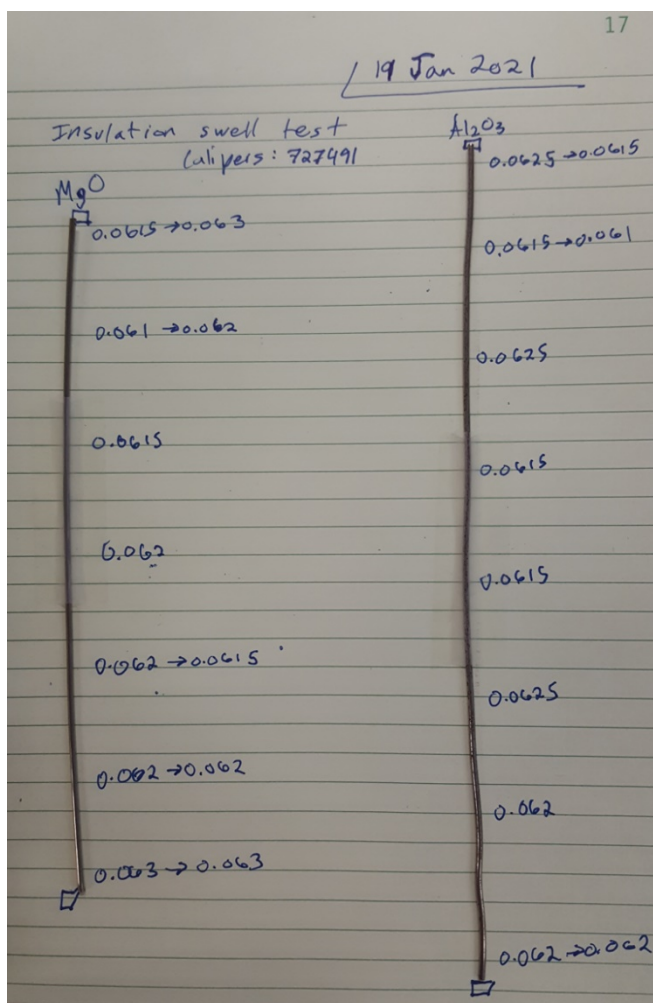 17
19 Jan 2021
Insulation swell test
Calipers: 727491
MgO
0.0615→0.063
0.061→0.062
0.0615
0.062
0.062→0.0615
0.062→0.062
0.063→0.063
Al2O3
0.0625→0.0615
0.0615→0.061
0.0625
0.0615
0.0615
0.0625
0.062
0.062→0.062